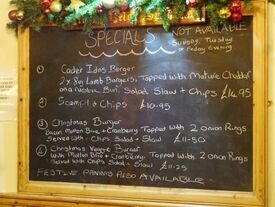 SPECIALS
NOT AVAILABLE
Sunday, Tuesday
or Friday Evening
① Cader Idris Burger
2 x 8oz Lamb Burgers, Topped with Mature Cheddar
on a Rustic Bun, Salad, Slaw + Chips £14.95
② Scampi + Chips £10.95
③ Christmas Burger
Bacon, Melton Brie + Cranberry Topped with 2 Onion Rings
Served with Chips Salad + Slaw £11-50
④ Christmas Veggie Burger
with Melton Brie + Cranberry, Topped with 2 Onion Rings
Served with Chips Salad + Slaw £11.25
FESTIVE PANINIS ALSO AVAILABLE